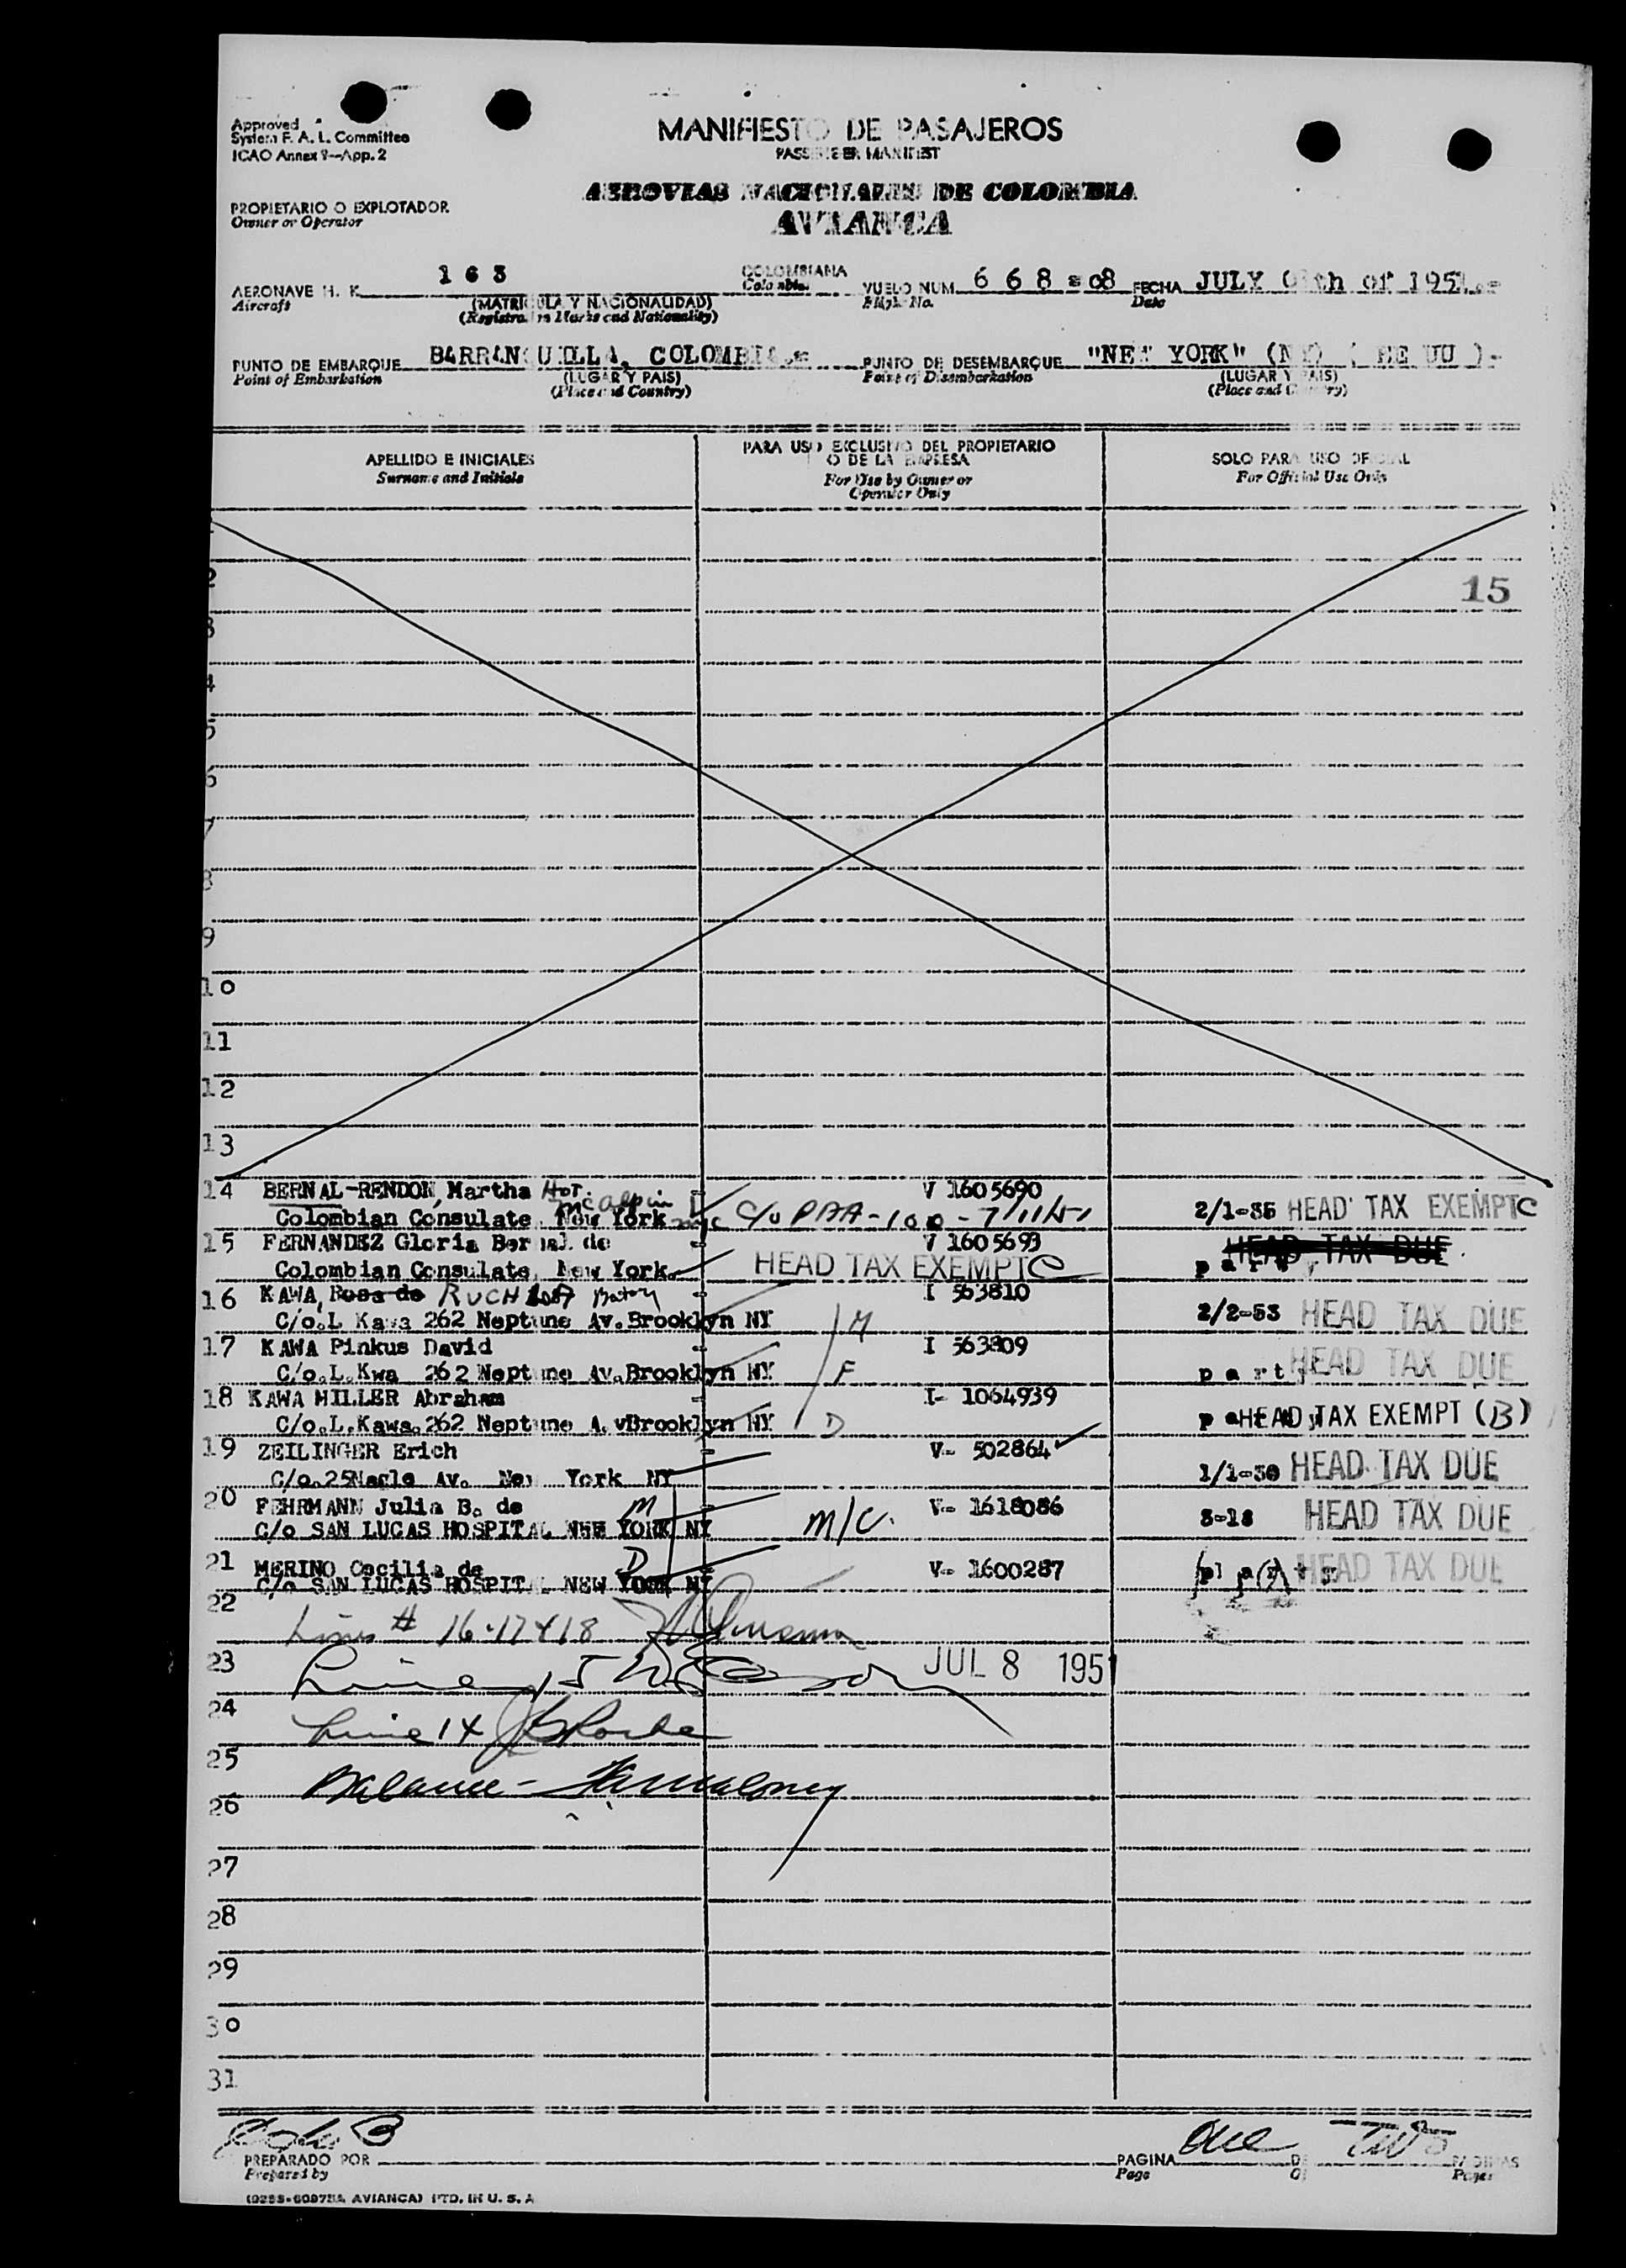 Approved
System F. A. L. Committee
ICAO Annex 9—App. 2
MANIFIESTO DE PASAJEROS
PASSENGER MANIFEST
AEROVIAS NACIONALES DE COLOMBIA
AVIANCA
PROPIETARIO O EXPLOTADOR
Owner or Operator
AERONAVE H. K. 1 6 3 COLOMBIANA VUELO NUM. 6 6 8 = 08 FECHA JULY 08th of 1951.=
Aircraft (MATRICULA Y NACIONALIDAD) Colombian Flight No. Date
(Registration Marks and Nationality)
PUNTO DE EMBARQUE BARRANQUILLA, COLOMBIA.= PUNTO DE DESEMBARQUE "NEW YORK" (NY) ( EE UU ).-
Point of Embarkation (LUGAR Y PAIS) Point of Disembarkation (LUGAR Y PAIS)
(Place and Country) (Place and Country)
APELLIDO E INICIALES PARA USO EXCLUSIVO DEL PROPIETARIO SOLO PARA USO OFICIAL
Surname and Initials O DE LA EMPRESA For Official Use Only
For Use by Owner or
Operator Only
2 15
3
4
5
6
7
8
9
10
11
12
13
14 BERNAL-RENDON, Martha Hot. McAlpin V 1605690
Colombian Consulate New York nyc C/O PAA-100-7/11/51 2/1-35 HEAD TAX EXEMPT C
15 FERNANDEZ Gloria Bernal de V 1605693 HEAD TAX DUE
Colombian Consulate, New York. HEAD TAX EXEMPT C party
16 KAWA, Rosa de RUCHLA I 563810
C/o.L Kawa 262 Neptune Av.Brooklyn NY M 2/2-53 HEAD TAX DUE
17 KAWA Pinkus David I 563809
C/o.L.Kwa 262 Neptune Av.Brooklyn NY F party HEAD TAX DUE
18 KAWA MILLER Abraham I- 1064939
C/o.L.Kawa.262 Neptune A.vBrooklyn NY D party HEAD TAX EXEMPT (B)
19 ZEILINGER Erich V- 502864
C/o.25Nagle Av. New York NY 1/1-30 HEAD TAX DUE
20 FEHRMANN Julia B. de M V- 1618086
C/o SAN LUCAS HOSPITAL NEW YORK NY M/C. 3-18 HEAD TAX DUE
21 MERINO Cecilia de D V- 1600287
C/o SAN LUCAS HOSPITAL NEW YORK NY party HEAD TAX DUE
22
Lines # 16-17 & 18
23 Line 15 JUL 8 1951
24
Line 14
25
Balance - Maloney
26
27
28
29
30
31
PREPARADO POR PAGINA One DE Two PAGINAS
Prepared by Page Of Pages
(9255-60975A AVIANCA) PTD. IN U. S. A.